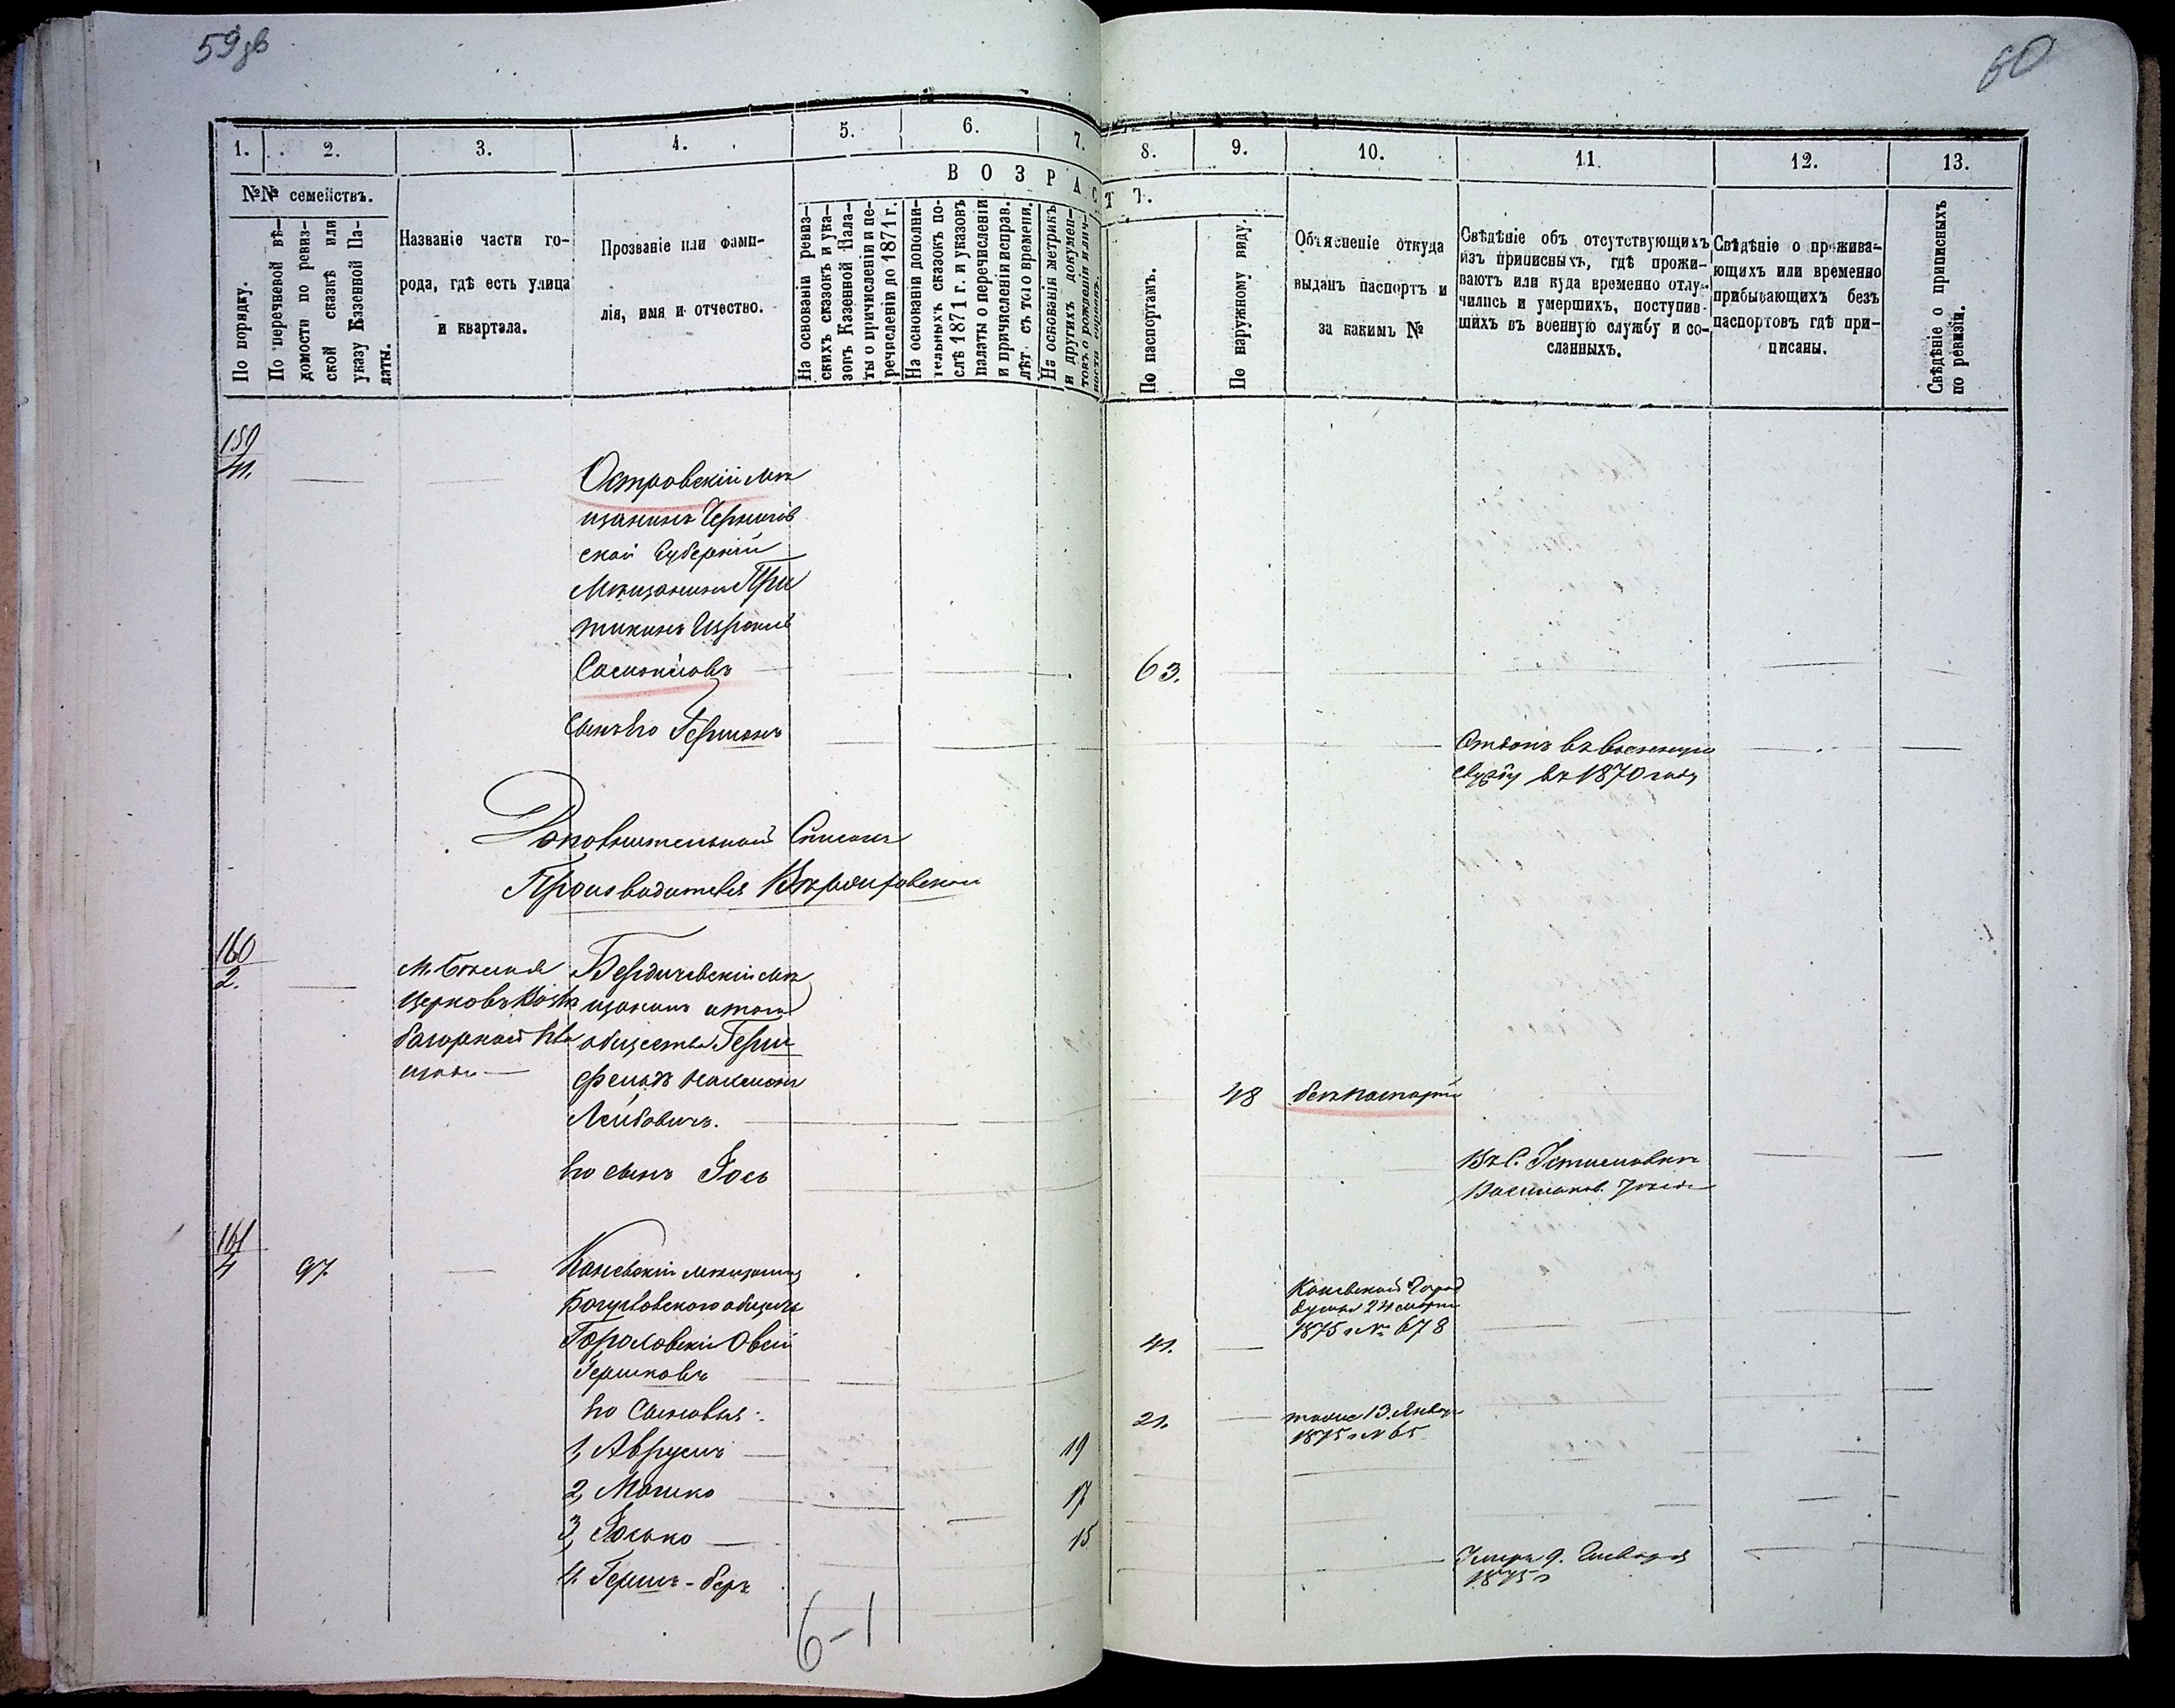 59 зв
60
1.
2.
3.
4.
5.
6.
7.
8.
9.
10.
11.
12.
13.
№№ семействъ.
ВОЗРАСТЪ.
По порядку.
По перечневой вѣ-
домости по ревиз-
ской сказкѣ или
указу Казенной Па-
латы.
Названіе части го-
рода, гдѣ есть улица
и квартала.
Прозваніе или фами-
лія, имя и отчество.
На основаніи ревиз-
скихъ сказокъ и ука-
зовъ Казенной Пала-
ты о причисленіи и пе-
речисленіи до 1871 г.
На основаніи дополни-
тельныхъ сказокъ по-
слѣ 1871 г. и указовъ
палаты о перечисленіи
и причисленіи исправ.
лѣт. съ того времени.
На основаніи метрикъ
и другихъ докумен-
товъ о рожденіи и лич-
По паспортамъ.
По наружному виду.
Объясненіе откуда
выданъ паспортъ и
за какимъ №
Свѣдѣніе объ отсутствующихъ
изъ приписныхъ, гдѣ прожи-
ваютъ или куда временно отлу-
чились и умершихъ, поступив-
шихъ въ военную службу и со-
сланныхъ.
Свѣдѣніе о прожива-
ющихъ или временно
прибывающихъ безъ
паспортовъ гдѣ при-
писаны.
Свѣдѣніе о приписныхъ
по ревизіи.
159
Островскій мѣ
щанинъ Чернигов
ской Губерніи
Мѣщанинъ
Израиль
63.
Сынъ его Гершонъ
Отданъ въ военную
службу въ 1870 году
Дополнительный Списокъ
Производителя
160
2.
М. Бѣлая
церковь
Бердичевскій мѣ
щанинъ
общества Герш
фельдъ
Лейбовичъ.
48
безъ паспорта
Его сынъ Іось
Въ С.
Васильков. уѣзда
161
4
97.
Каневскій мѣщанинъ
Богуславского общества
Гороховскій Овсій
Гершковъ
41.
Каневской Город
думы 24 марта
1875 г № 678
Его Сыновья:
21.
тоже 13. Январ
1875 г № 65
1, Аврумъ 19
2, Мошко 17
3, Іосько 15
4. Гершъ-беръ
Умеръ 9. Января
1875 г
6-1